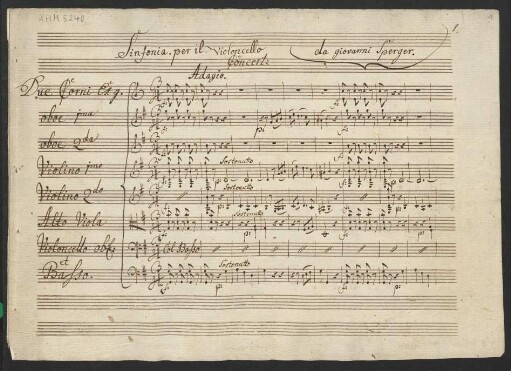 AHM 5240
1.
Sinfonia. per il Violoncello da giovanni Sperger.
Concerti
Adagio.
Due Corni Ex g.
oboe pma
oboe 2da
Violino primo Sostenuto
Violino 2do Sostenuto
Alto Viola Sostenuto
Violoncello Col Basso
et
Basso. Sostenuto